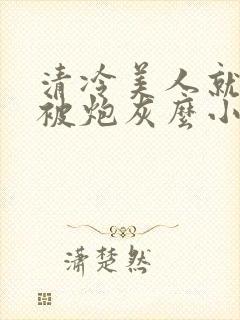 清冷美人就
被炮灰麼小
潇楚然